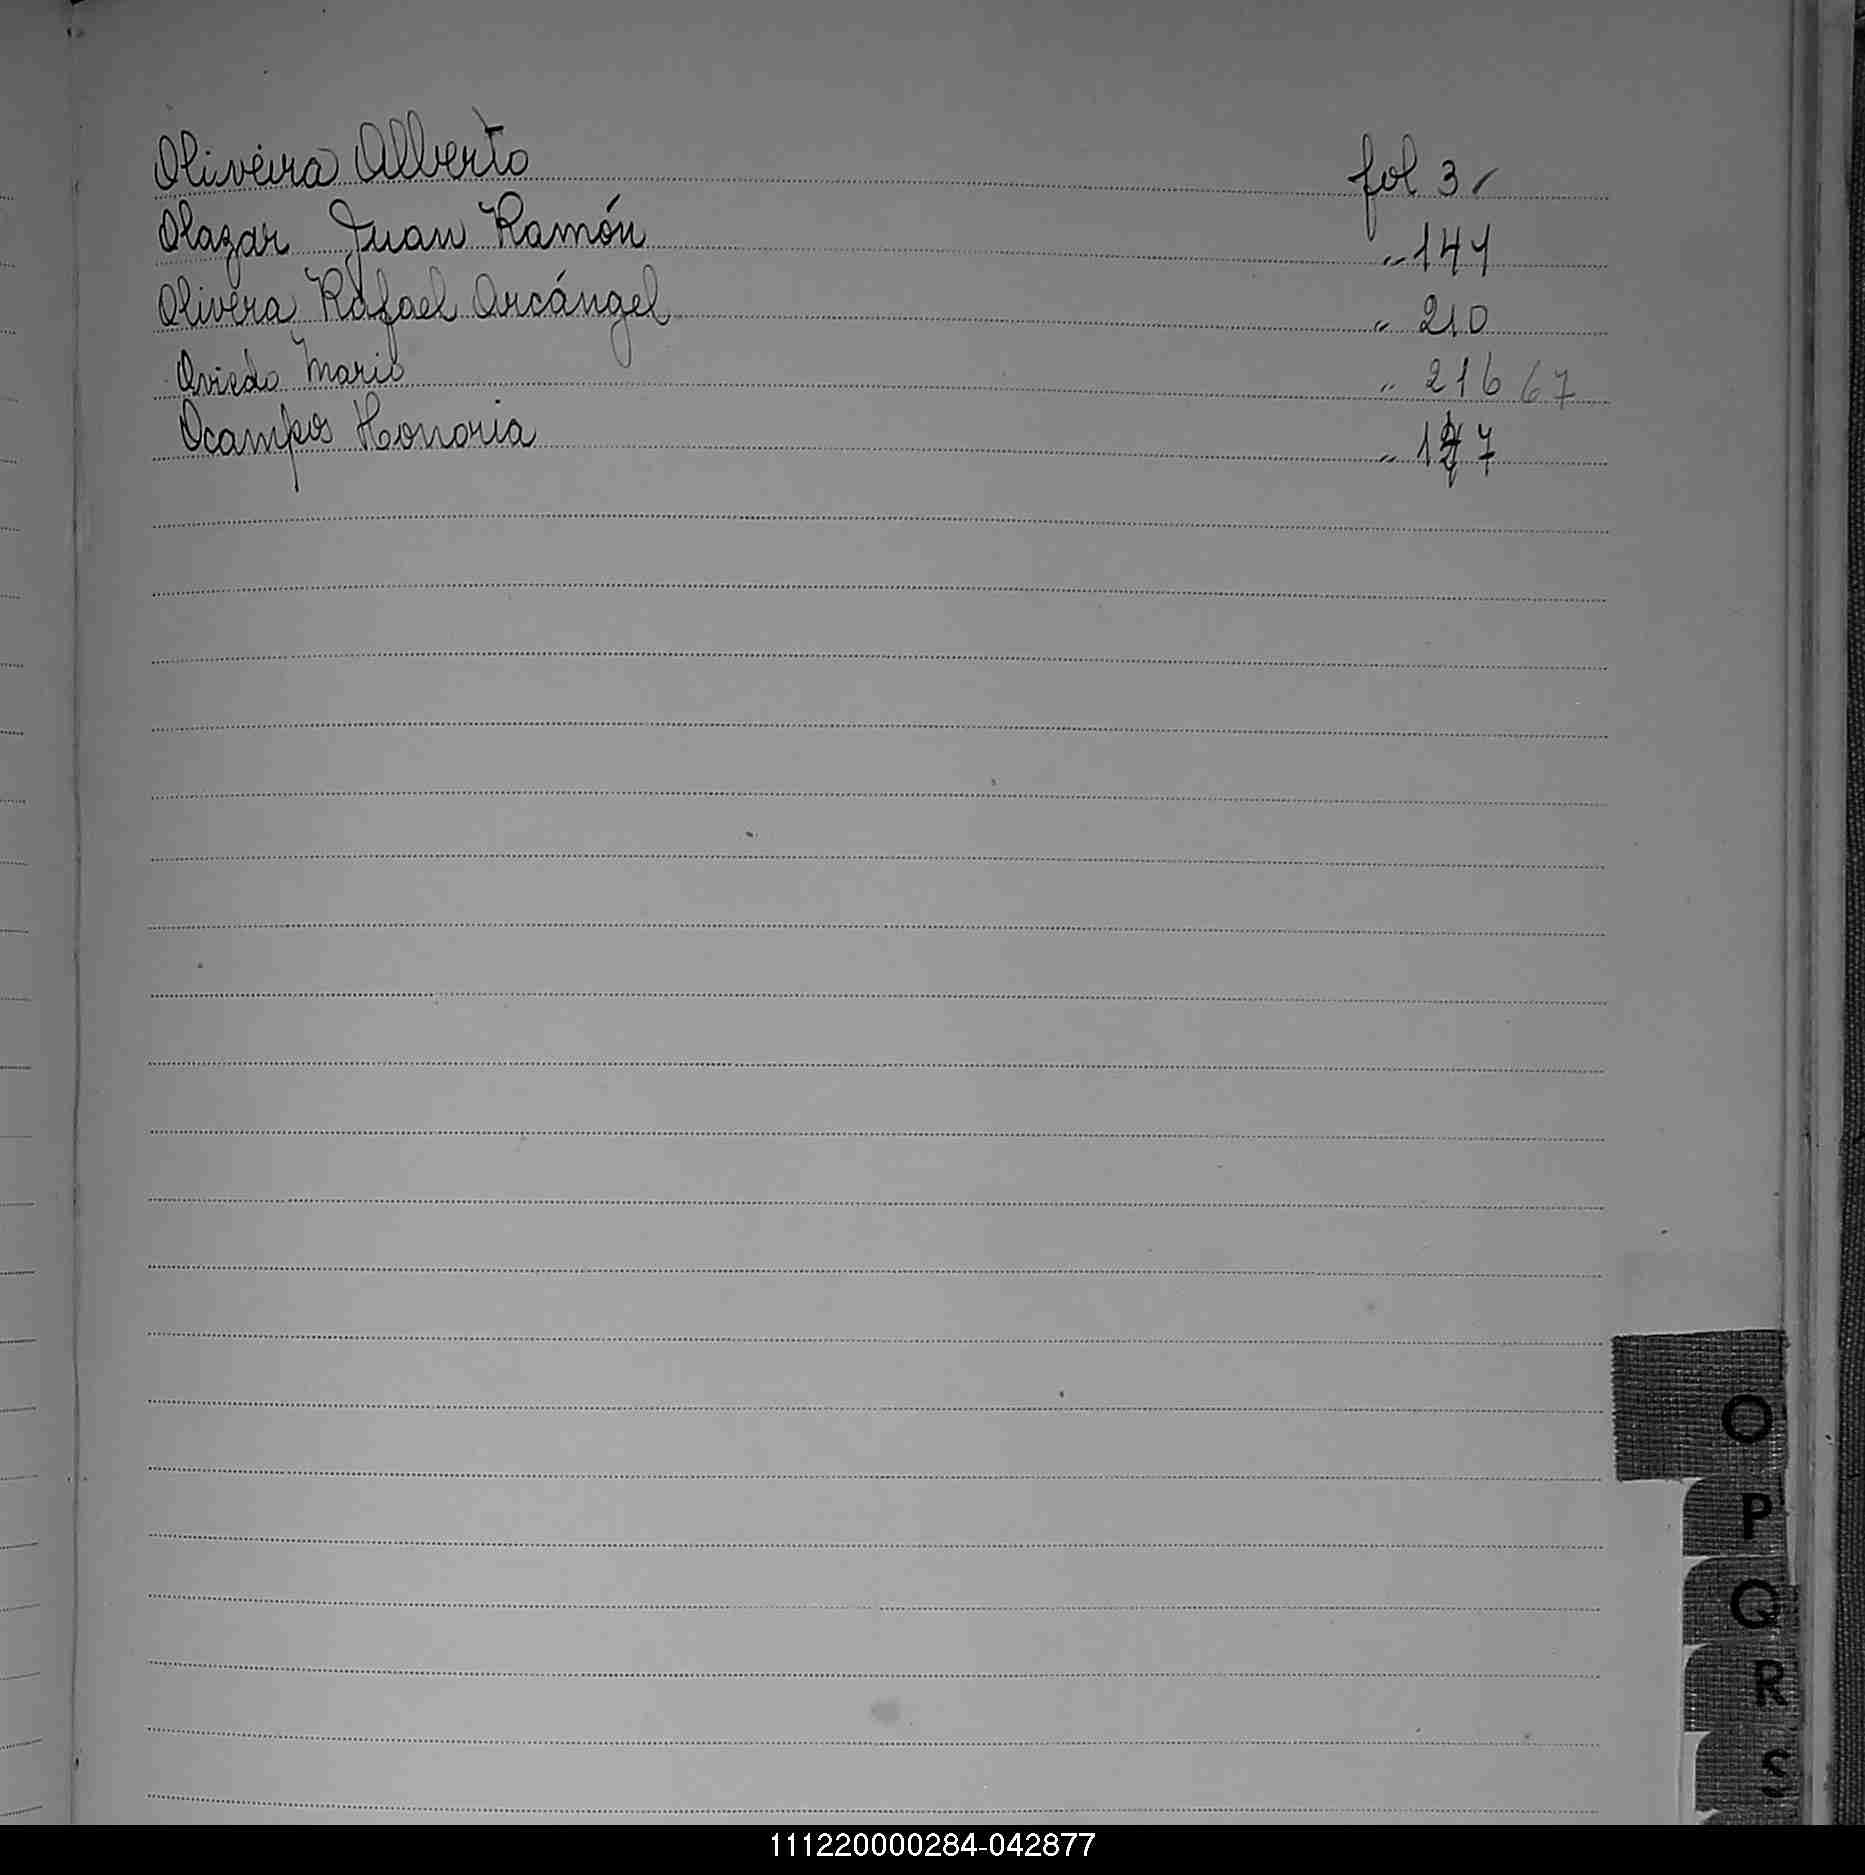 Oliveira Alberto fol 3
Olazar Juan Ramón " 141
Olivera Rafael Arcángel " 210
Oviedo Mario " 216 67
Ocampos Honoria "
O
P
Q
R
S
111220000284-042877